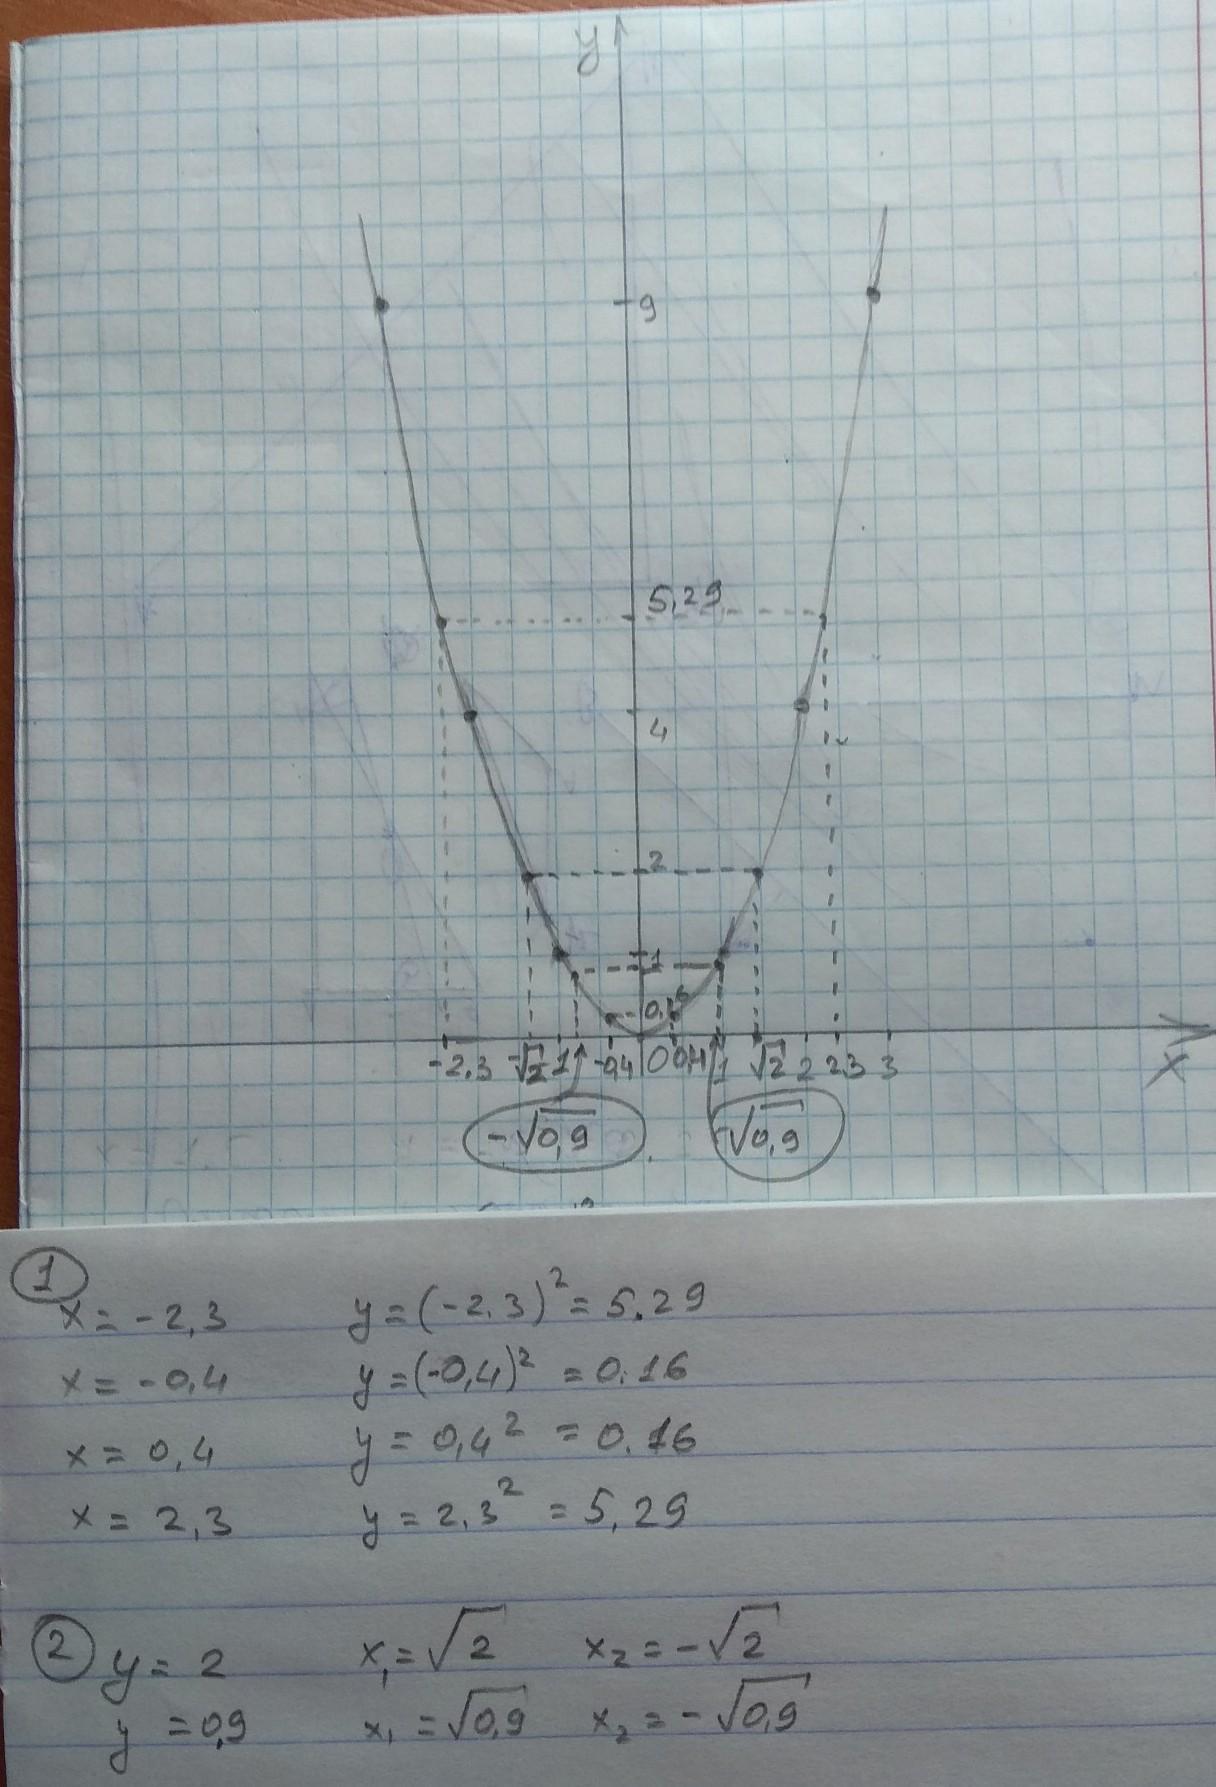 y
9
5,29
4
2
1
0,16
-2,3 -√2 1 -0,4 0 0,4 1 √2 2 2,3 3
x
-√0,9 √0,9
1
x = -2,3 y = (-2.3)² = 5.29
x = -0,4 y = (-0,4)² = 0.16
x = 0,4 y = 0,4² = 0.16
x = 2,3 y = 2,3² = 5,29
2 y = 2 x₁ = √2 x₂ = -√2
y = 0,9 x₁ = √0,9 x₂ = -√0,9